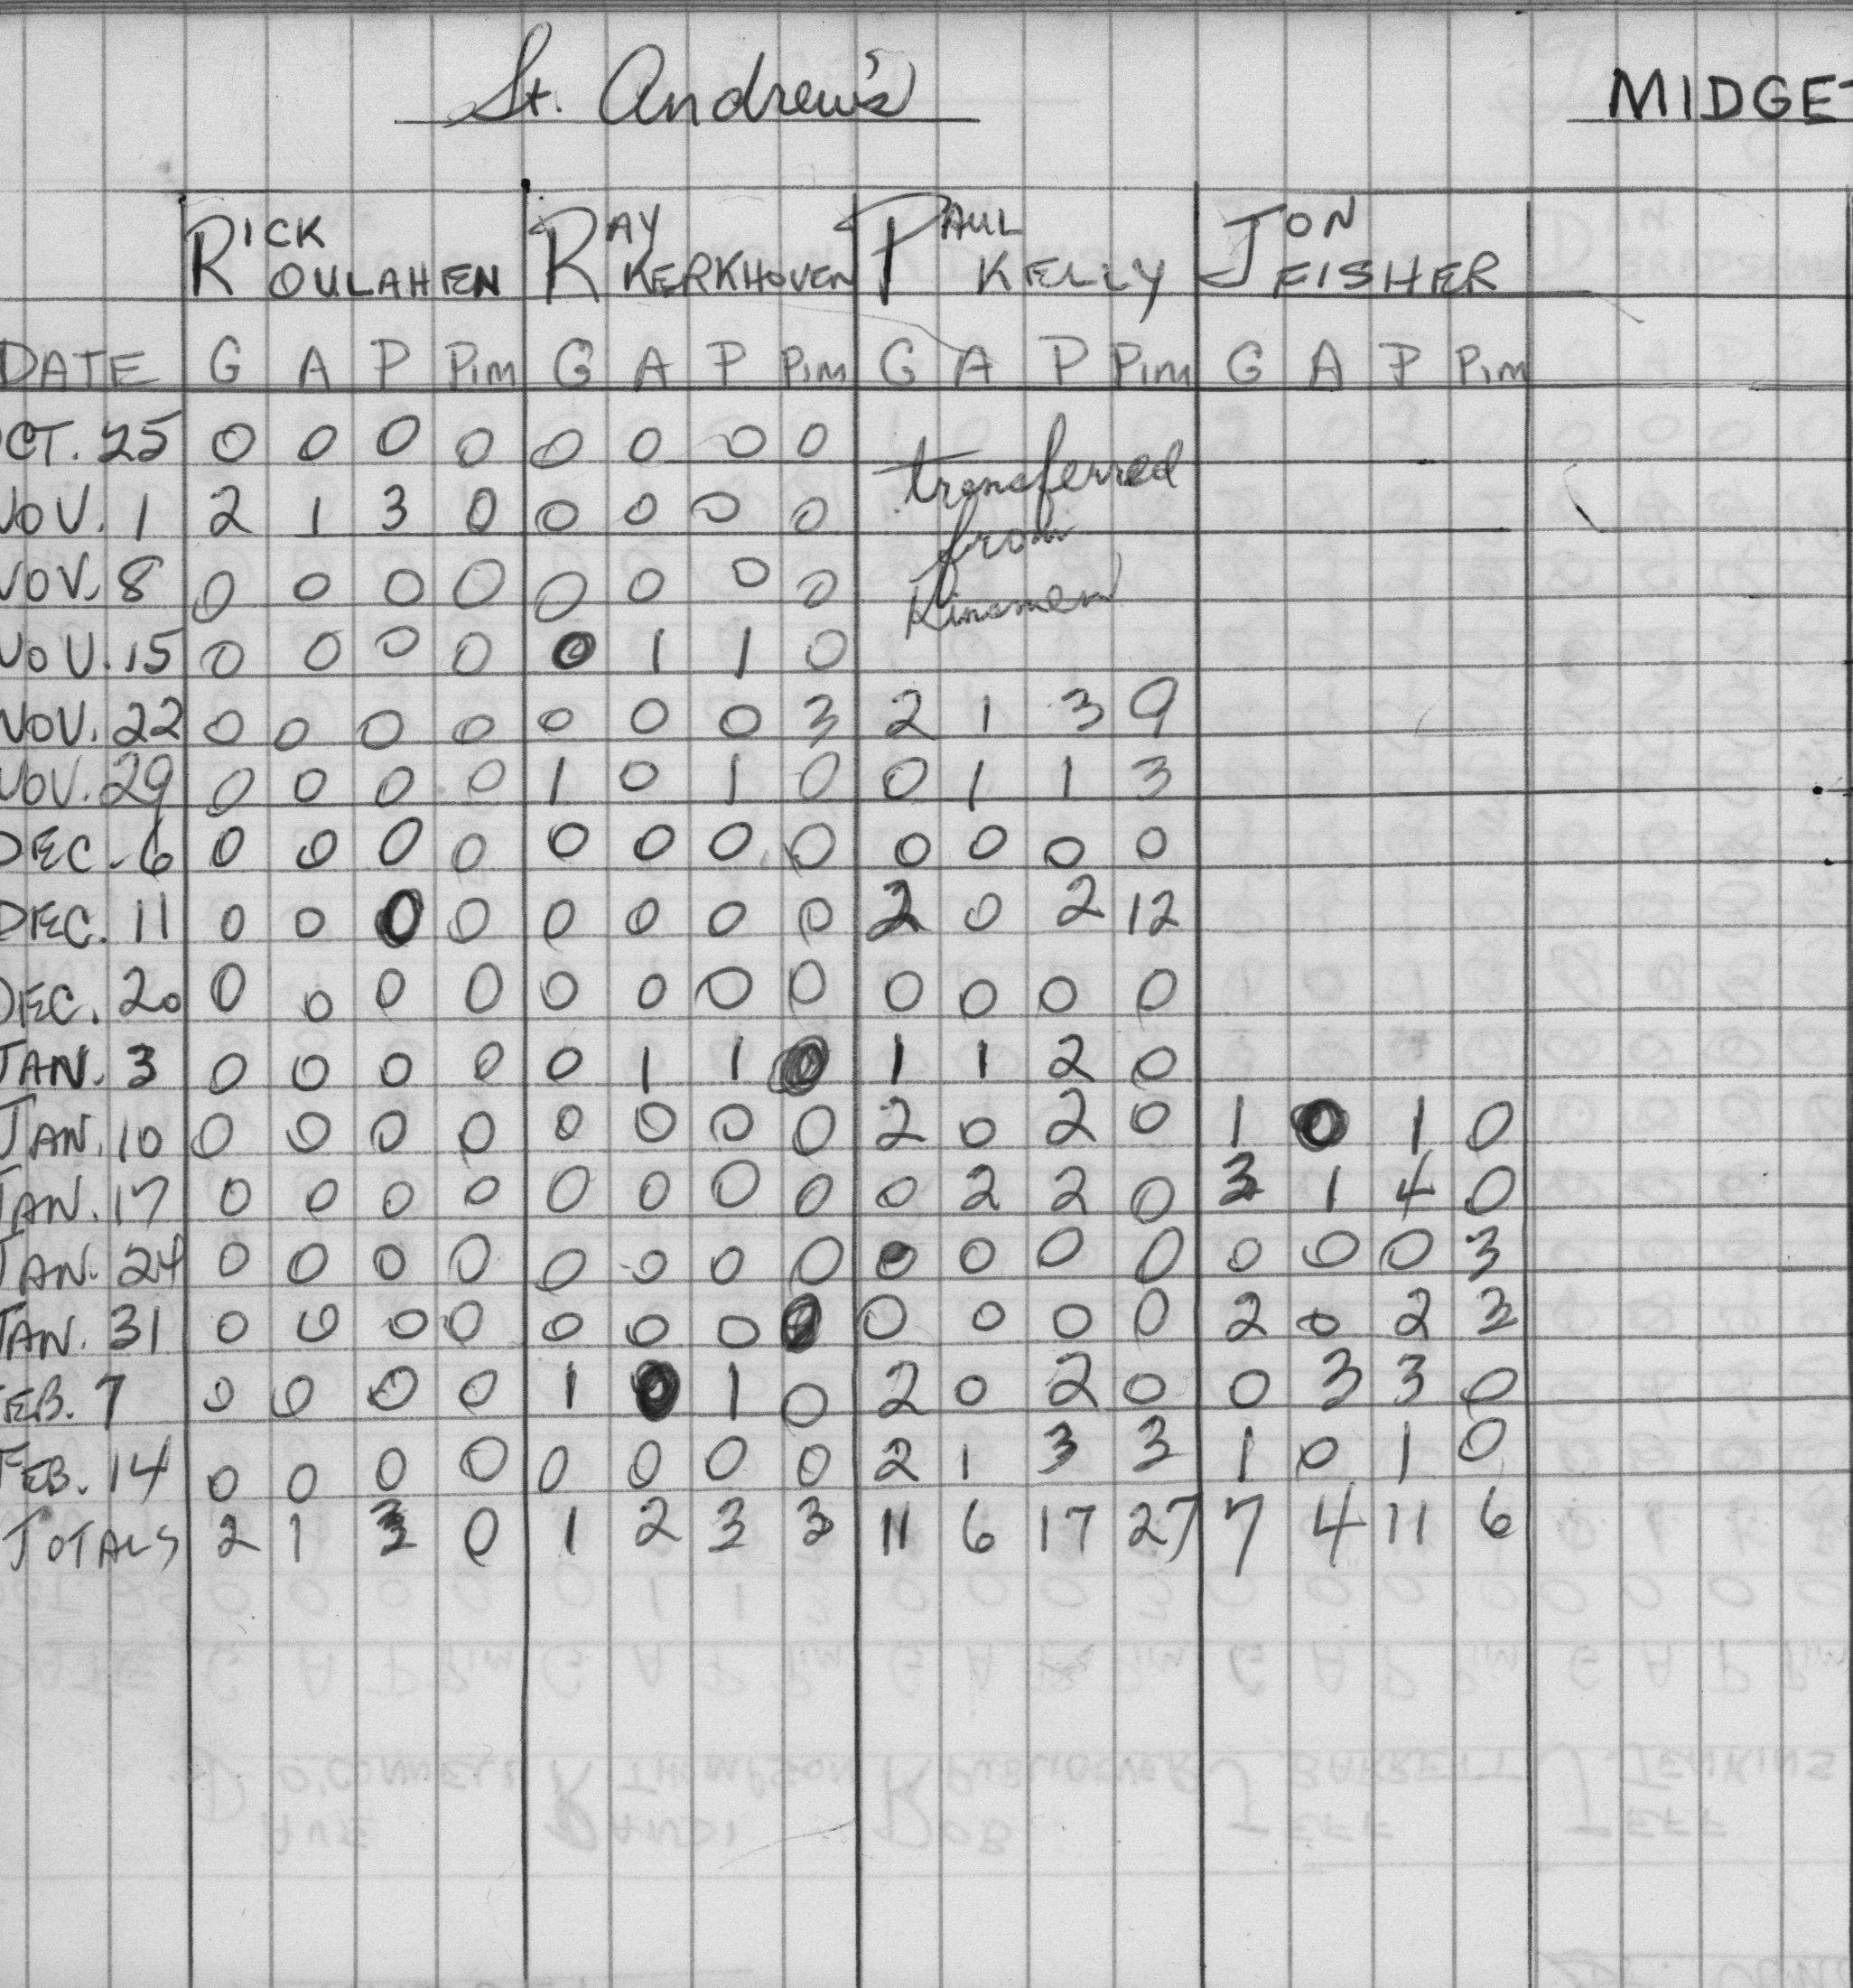 St. Andrew's MIDGET
RICK OULAHEN RAY KERKHOVEN PAUL KELLY JON FISHER
DATE G A P Pim G A P Pim G A P Pim G A P Pim
OCT. 25 0 0 0 0 0 0 0 0 transferred
NOV. 1 2 1 3 0 0 0 0 0 from
NOV. 8 0 0 0 0 0 0 0 0 Kinsmen
NOV. 15 0 0 0 0 0 1 1 0
NOV. 22 0 0 0 0 0 0 0 3 2 1 3 9
NOV. 29 0 0 0 0 1 0 1 0 0 1 1 3
DEC. 6 0 0 0 0 0 0 0 0 0 0 0 0
DEC. 11 0 0 0 0 0 0 0 0 2 0 2 12
DEC. 20 0 0 0 0 0 0 0 0 0 0 0 0
JAN. 3 0 0 0 0 0 1 1 0 1 1 2 0
JAN. 10 0 0 0 0 0 0 0 0 2 0 2 0 1 0 1 0
JAN. 17 0 0 0 0 0 0 0 0 0 2 2 0 3 1 4 0
JAN. 24 0 0 0 0 0 0 0 0 0 0 0 0 0 0 0 3
JAN. 31 0 0 0 0 0 0 0 0 0 0 0 0 2 0 2 3
FEB. 7 0 0 0 0 1 0 1 0 2 0 2 0 0 3 3 0
FEB. 14 0 0 0 0 0 0 0 0 2 1 3 3 1 0 1 0
TOTALS 2 1 3 0 1 2 3 3 11 6 17 27 7 4 11 6